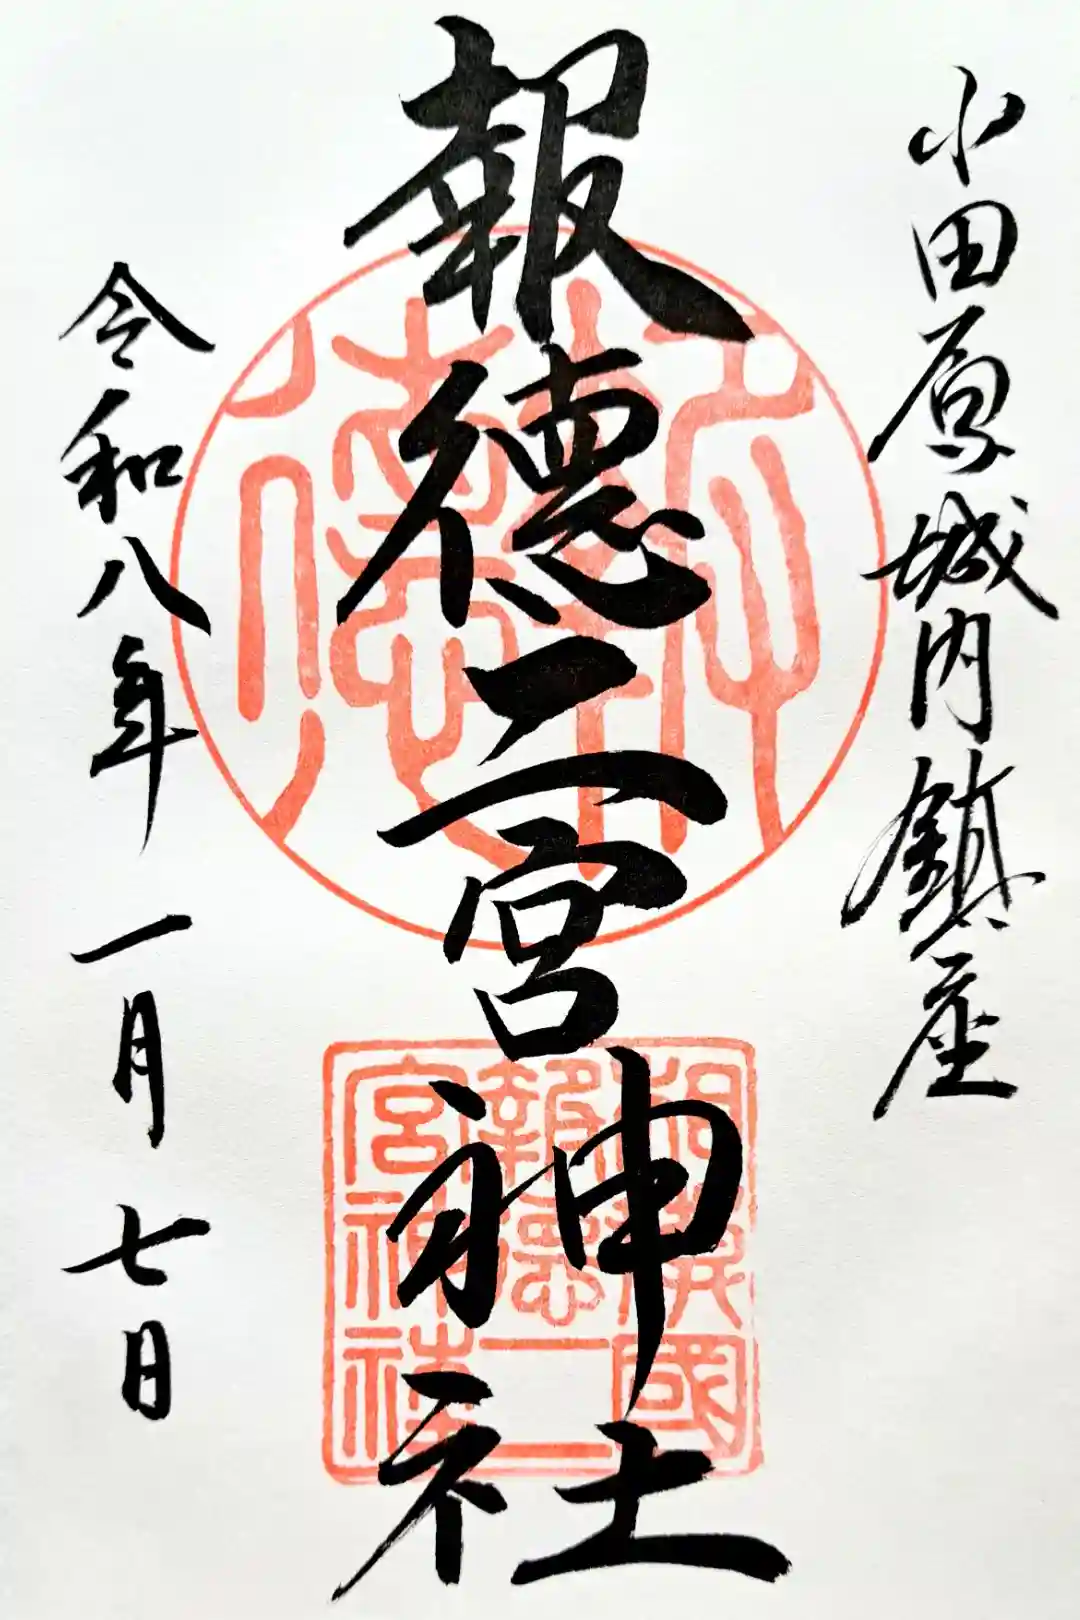 小田原城内鎮座
報徳二宮神社
令和八年 一月 七日
報徳
相模國
報徳二
宮神社